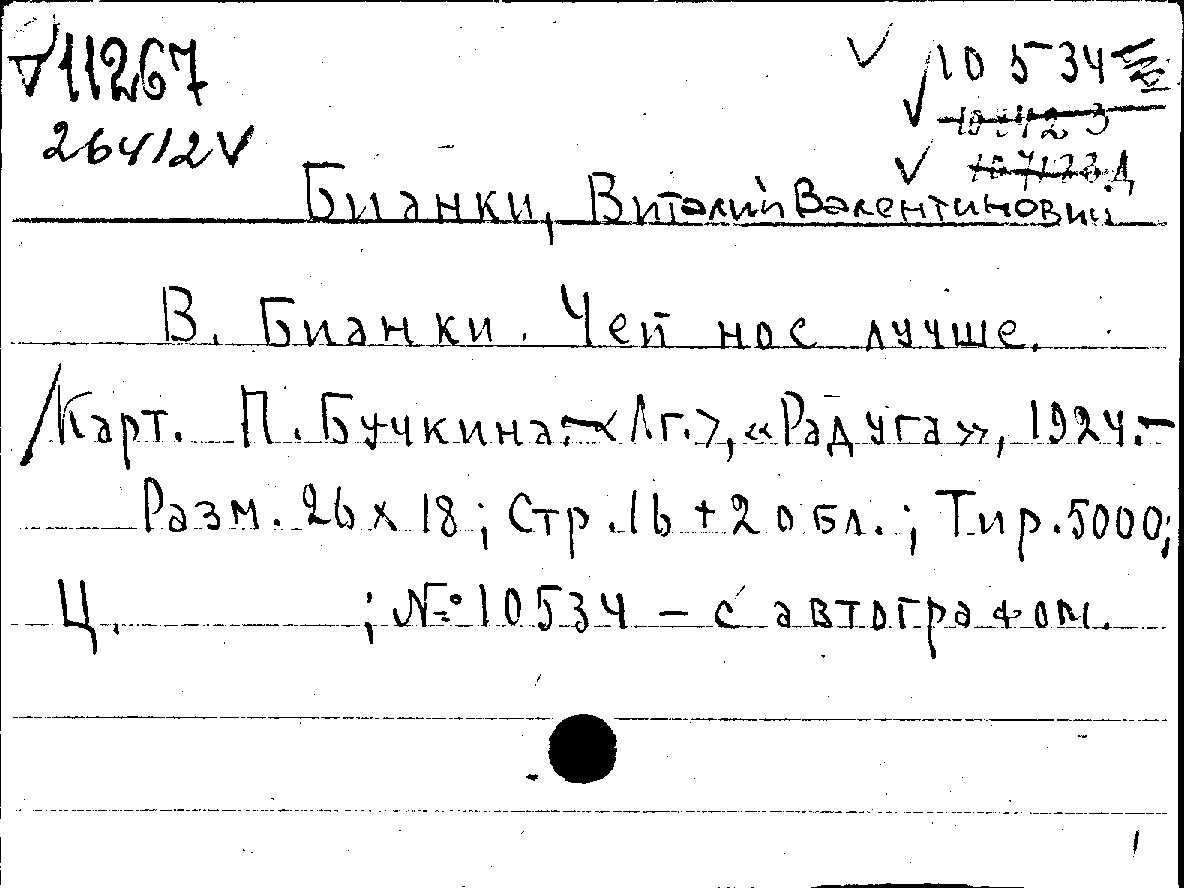 √11267
√10534
26412√
Бианки, Виталий Валентинович
В. Бианки. Чей нос лучше.
/Карт. П. Бучкина.–<Лг.>, «Радуга», 1924.–
Разм. 26х18; Стр. 16 + 2 обл.; Тир. 5000;
Ц. ; № 10534 – с автографом.